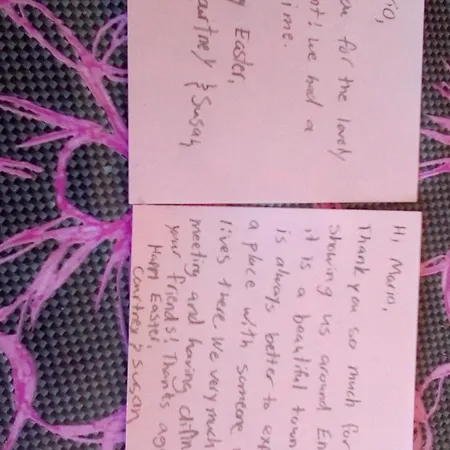 io,
ou for the lovely
nt! We had a
ime.
y Easter,
ourtney & Susan
Hi Mario,
Thank you so much for
Showing us around En
it is a beautiful town
is always better to exp
a place with someone
lives there. We very much
meeting and having din
your friends! Thanks ag
Happy Easter,
Courtney & Susan